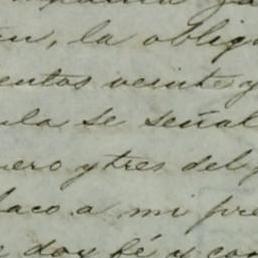 la oblig
entos veinte y
la se señal
ero y tres del p
aco. a mi pre
doy fé y con